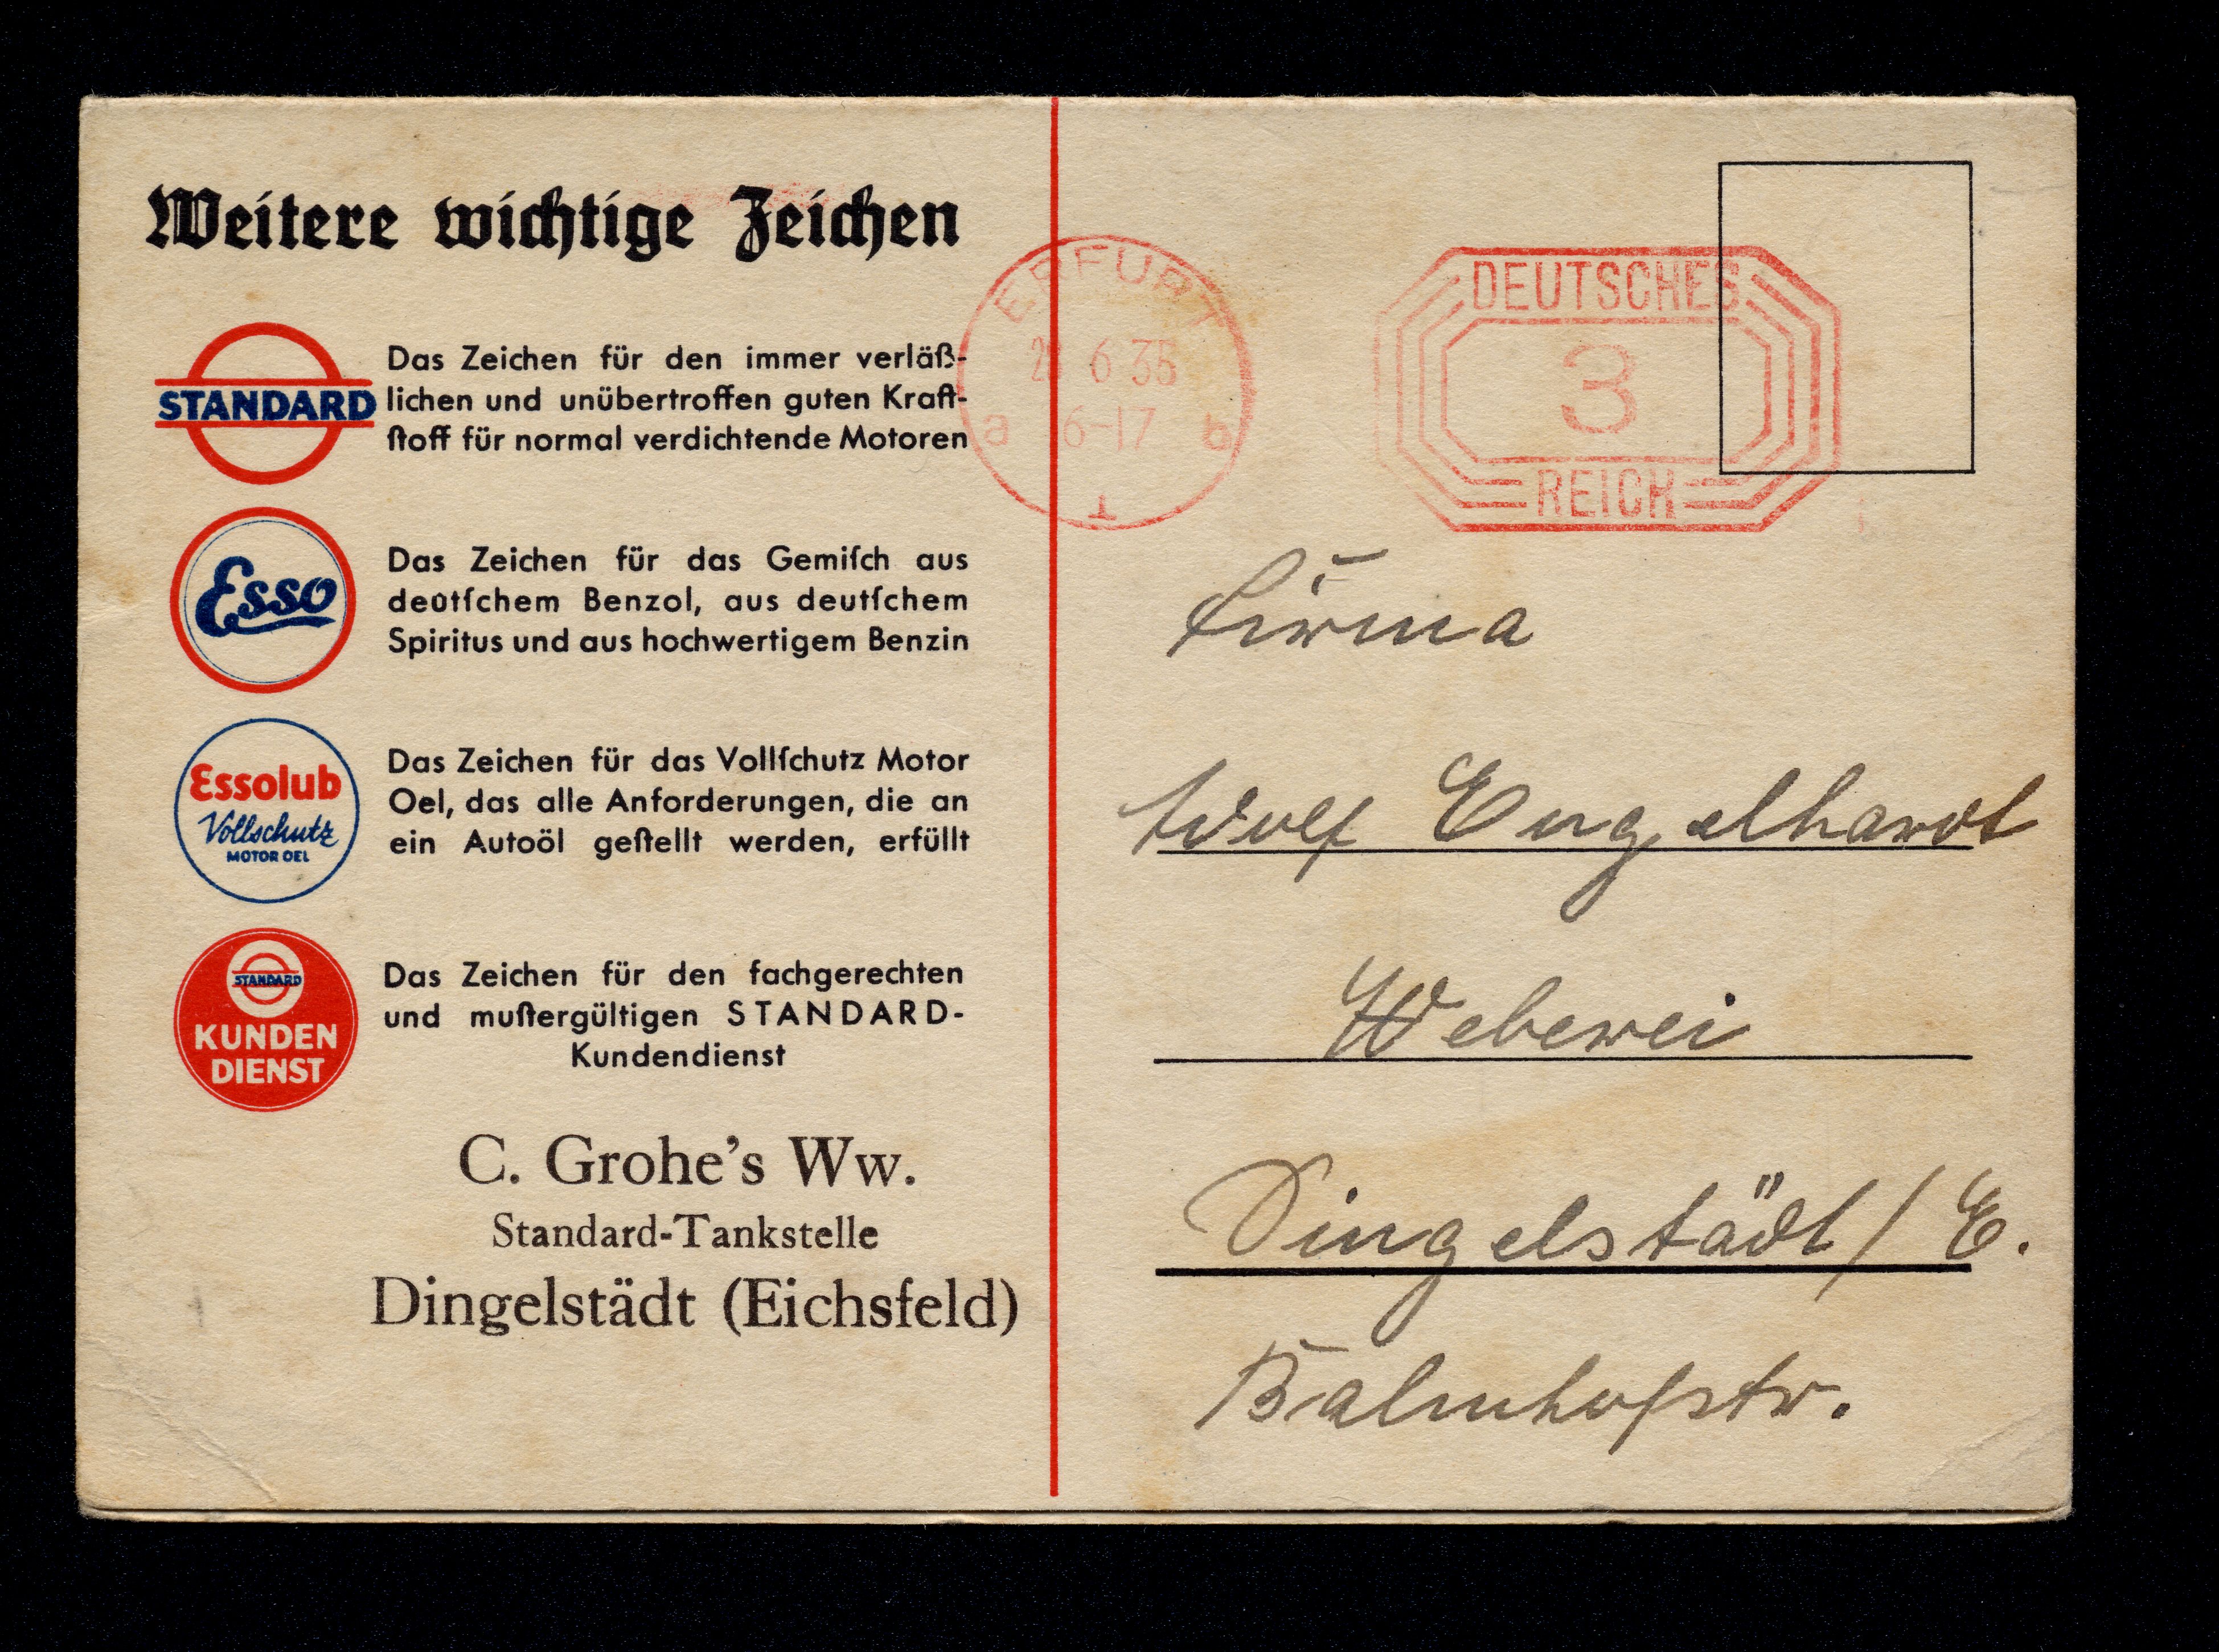 Weitere wichtige Zeichen
STANDARD
Das Zeichen für den immer verläß-
lichen und unübertroffen guten Kraft-
ſtoff für normal verdichtende Motoren
Esso
Das Zeichen für das Gemiſch aus
deutſchem Benzol, aus deutſchem
Spiritus und aus hochwertigem Benzin
Essolub
Vollschutz
MOTOR OEL
Das Zeichen für das Vollſchutz Motor
Oel, das alle Anforderungen, die an
ein Autoöl geſtellt werden, erfüllt
STANDARD
KUNDEN
DIENST
Das Zeichen für den fachgerechten
und muſtergültigen STANDARD-
Kundendienst
C. Grohe's Ww.
Standard-Tankstelle
Dingelstädt (Eichsfeld)
ERFURT
6 35
6-17
a b
1
DEUTSCHES
3
REICH
Firma
Wolf Engelhardt
Weberei
Dingelstädt / E.
Bahnhofstr.